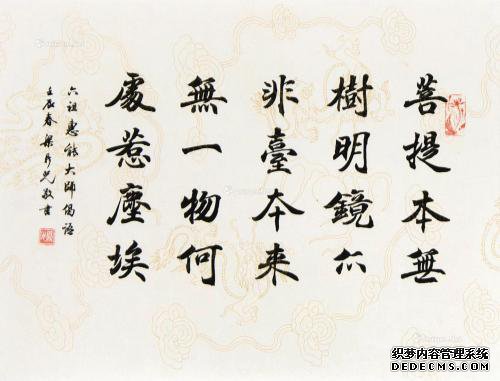 菩提本無
樹明鏡亦
非臺本來
無一物何
處惹塵埃
六祖惠能大師偈語
壬辰春敬書
织梦内容管理系统
DEDECMS.COM